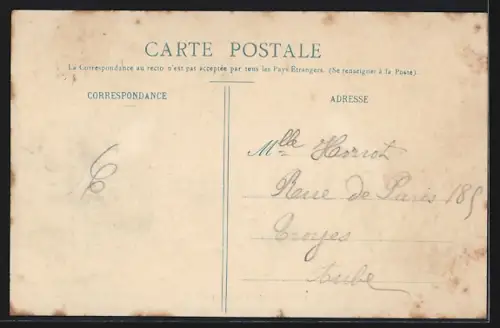 CARTE POSTALE
La Correspondance au recto n'est pas acceptée par tous les Pays Étrangers. (Se renseigner à la Poste).
CORRESPONDANCE
ADRESSE
Mlle Horiot
Rue de Paris 185
Troyes
Aube